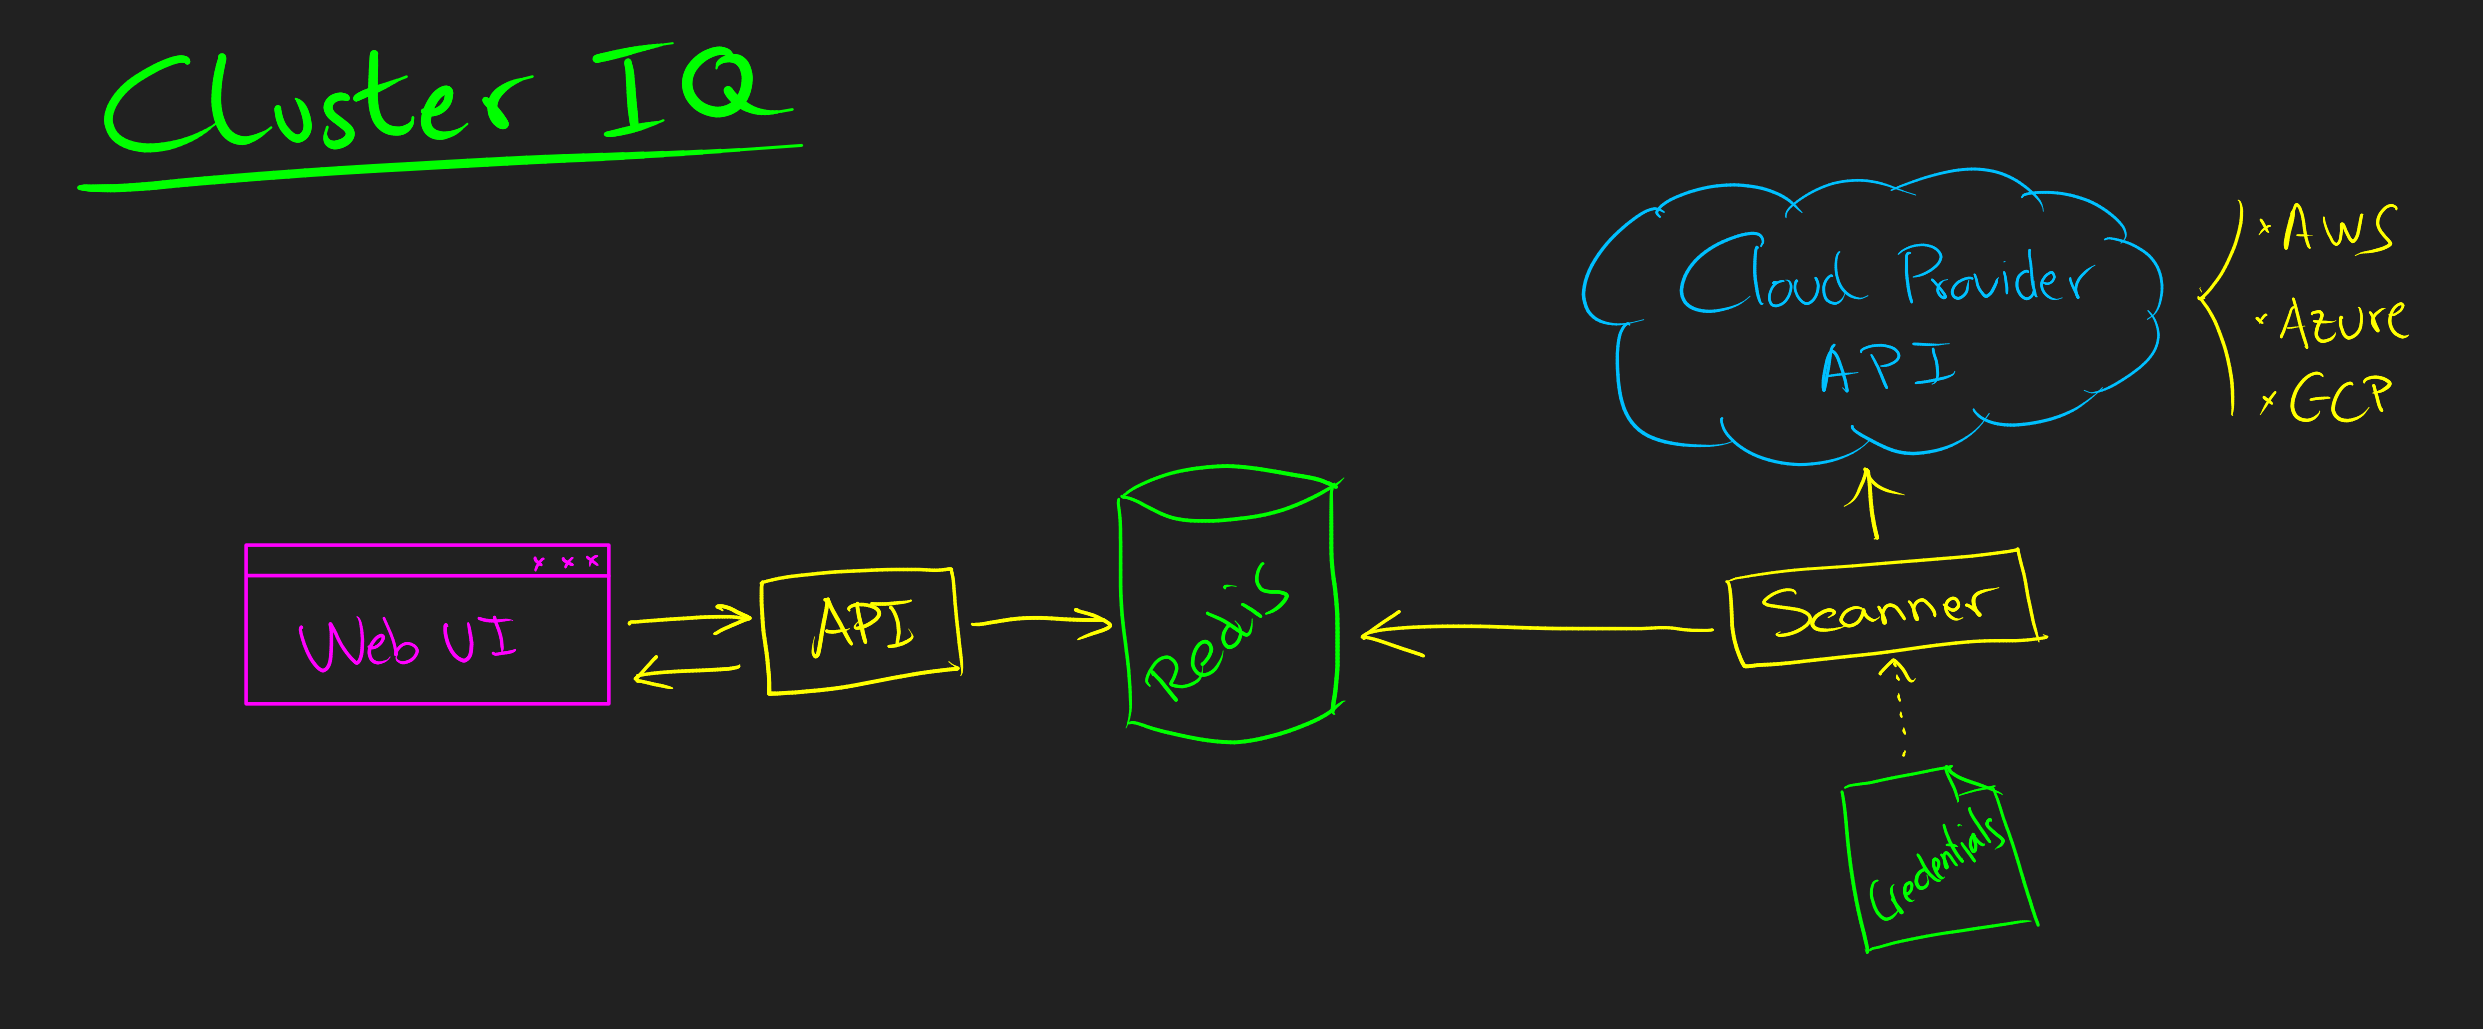 Cluster IQ
Cloud Provider
API
× AWS
× Azure
× GCP
Web UI
API
Redis
Scanner
Credentials